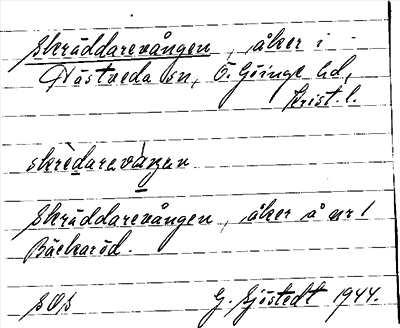 Skräddarevången, åker i
Hästveda sn, Ö. Göinge hd,
Krist. l.
skrèdarevàŋen
Skräddarevången, åker å nr 1
Bäckaröd.
SOS G. Sjöstedt 1944.